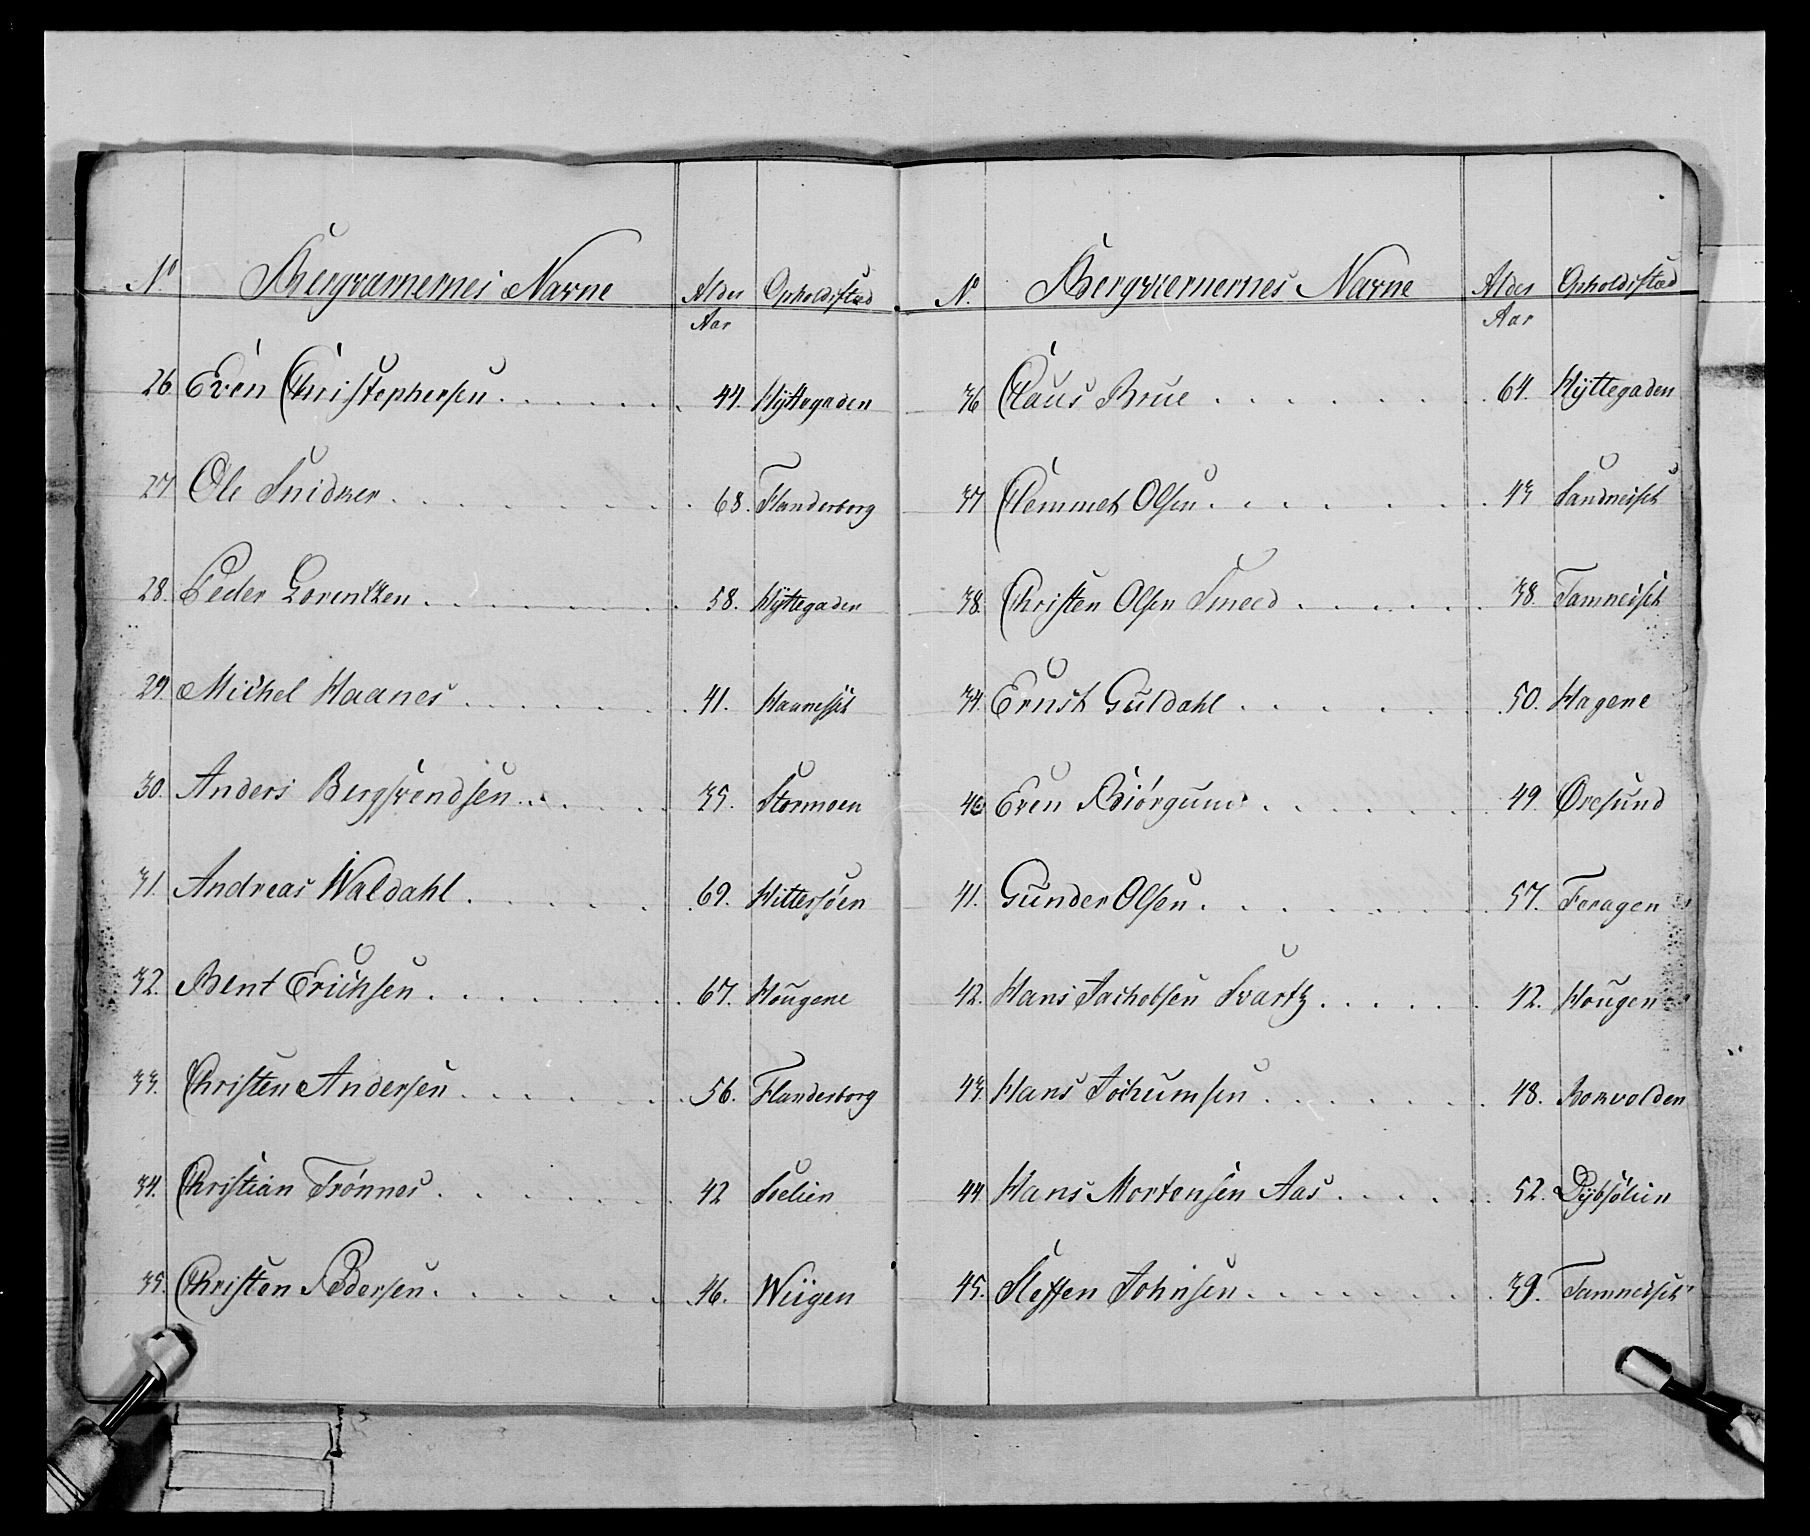 No Bergværnernes Navne Alder Opholdsstæd
Aar
26. Even Christophersen 44. Hÿttegaden
27 Ole Snidker 68. Flanderborg
28. Peder Lorentzen 58. Hÿttegaden
29. Michel Haanes 41. Haanesset
30. Anders Bergsvendsen 35. Stormoen
31. Andreas Waldahl 69. Hittersøen
32. Bent Erichsen 67. Hougene
33. Christen Andersen 56. Flanderborg
34. Christian Trønnes 42 Seelien
35. Christen Pedersen 46. Wiigen
No. Bergværnernes Navne Alder Opholdsstæd
Aar
36 Claus Brue 64. Hÿttegaden
37 Clemmet Olsen 43 Sandnesset
38. Christen Olsen Smeed 38. Tamnesset
39. Ernst Guldahl 50. Hagene
40 Even Biörgum 49. Øresund
41. Gunder Olsen 57. Feragen
42. Hans Jachobsen Svartz 42. Hougen
43. Hans Jochumsen 48. Borvolden
44 Hans Mortensen Aas 52. Dÿbsølien
45. Steffen Johnsen 39. Tamnesset